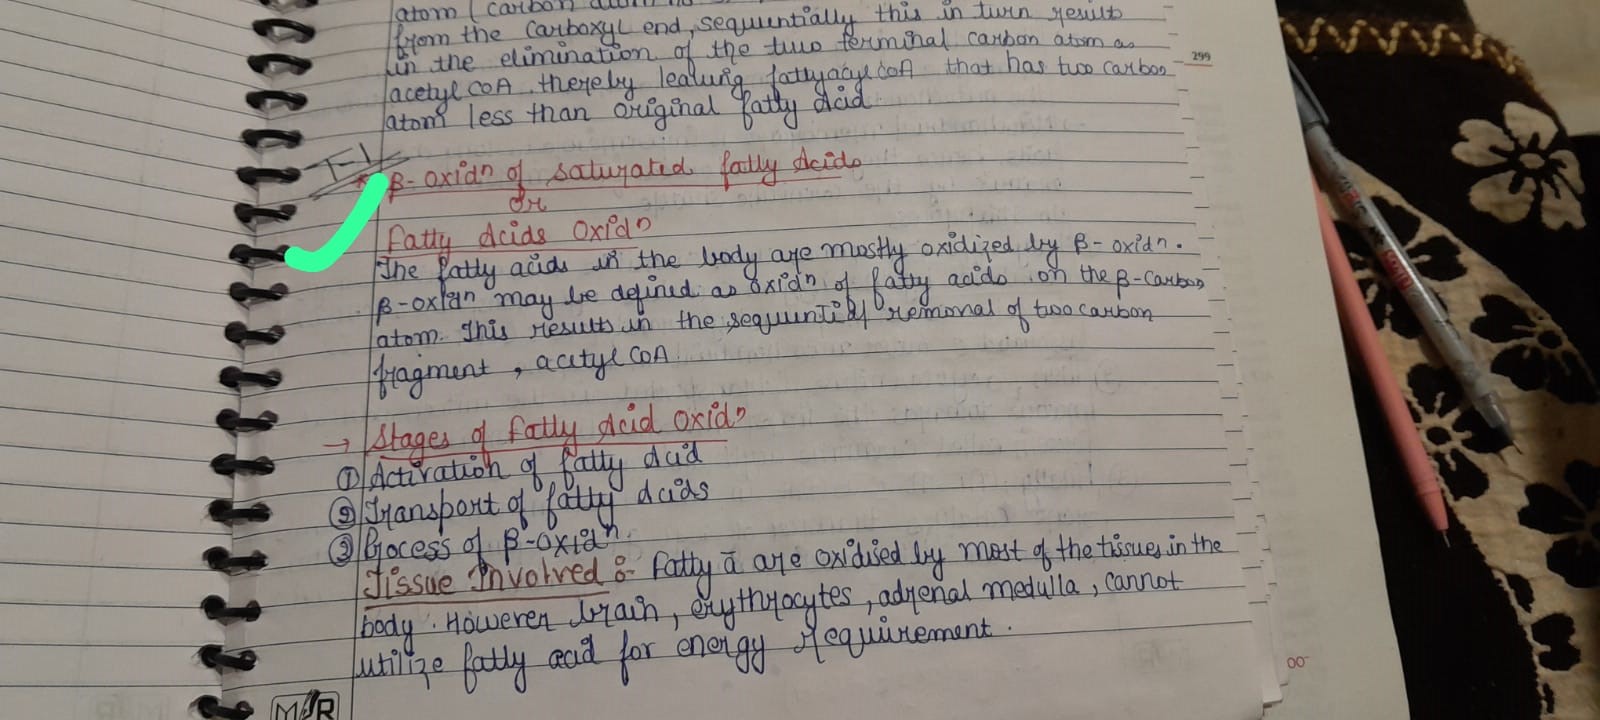 atom (carbon atom no
from the carboxyl end, sequentially this in turn result
in the elimination of the two terminal carbon atom as
acetyl CoA thereby leaving fattyacyl coA that has two carbon
atom less than original fatty Acid.
299
T-1
* β-oxidn of saturated fatty Acids
Or
Fatty Acids Oxidn
The fatty acids in the body are mostly oxidized by β-oxidn.
β-oxidn may be defined as oxidn of fatty acids on the β-carbon
atom. This results in the sequential removal of two carbon
fragment, acetyl CoA.
→ Stages of Fatty Acid Oxidn
① Activation of fatty Acid
② Transport of fatty Acids
③ Process of β-oxidn.
Tissue Involved :- Fatty ā are oxidised by most of the tissues in the
body. However brain, erythrocytes, adrenal medulla, cannot
utilize fatty acid for energy requirement.
00
M R